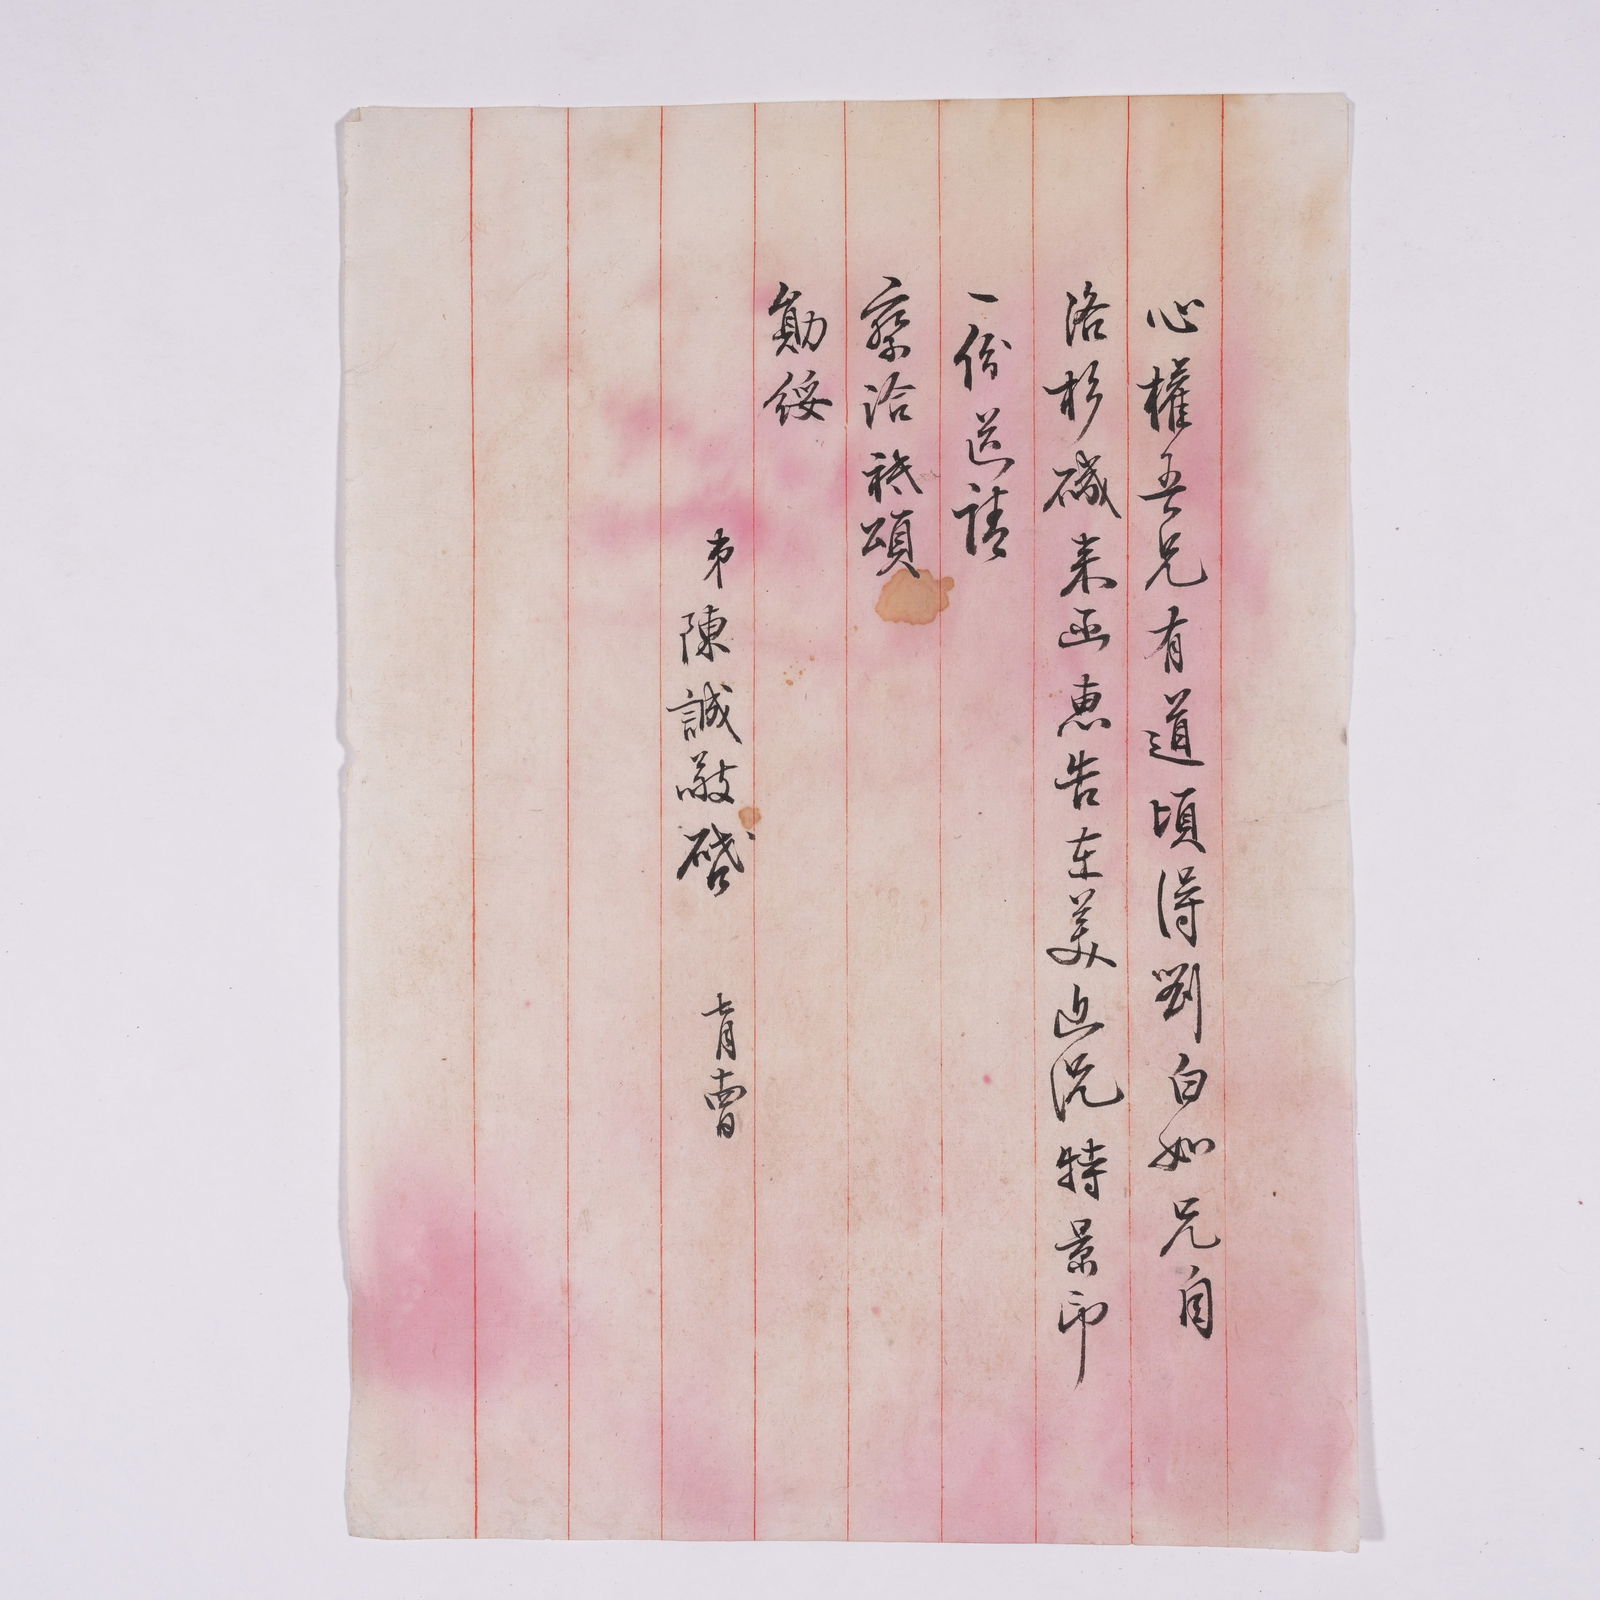 心權吾兄有道頃得劉白如兄自
洛杉磯來函惠告在美近況特景印
一份送請
察洽祗頌
勛綏
弟陳誠敬啓 七月廿四日